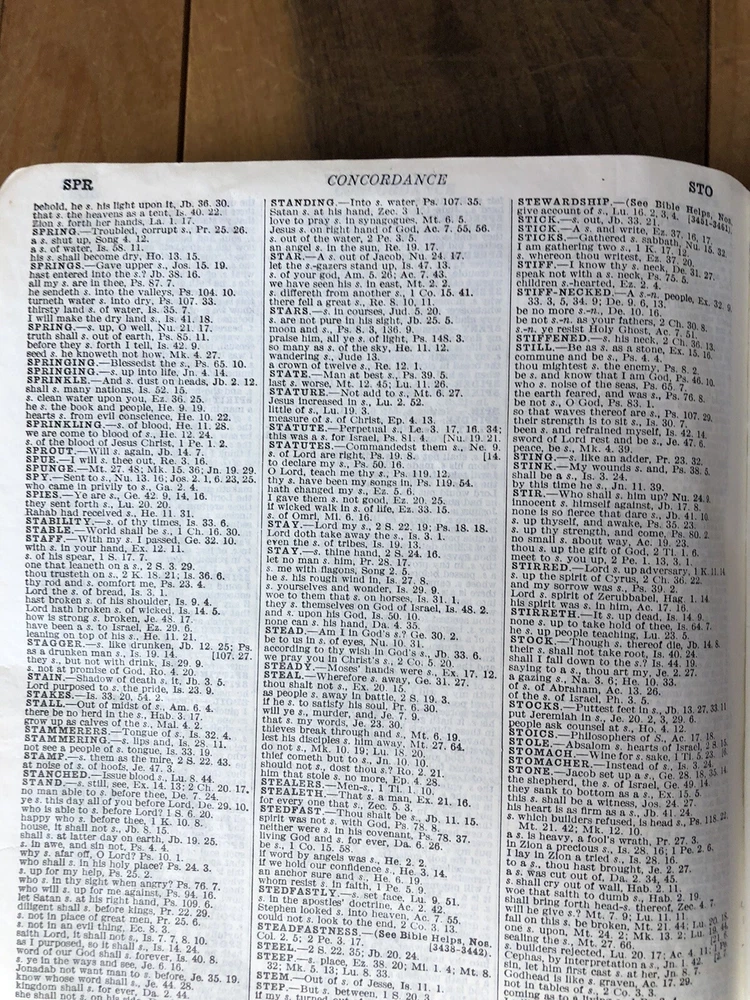 SPR
CONCORDANCE
STO
behold, he s. his light upon it, Jb. 36. 30.
that s. the heavens as a tent, Is. 40. 22.
Zion s. forth her hands, La. 1. 17.
SPRING.—Troubled, corrupt s., Pr. 25. 26.
a s. shut up, Song 4. 12.
a s. of water, Is. 58. 11.
his s. shall become dry, Ho. 13. 15.
SPRINGS.—Gave upper s., Jos. 15. 19.
hast entered into the s.? Jb. 38. 16.
all my s. are in thee, Ps. 87. 7.
he sendeth s. into the valleys, Ps. 104. 10.
turneth water s. into dry, Ps. 107. 33.
thirsty land s. of water, Is. 35. 7.
I will make the dry land s., Is. 41. 18.
SPRING.—s. up, O well, Nu. 21. 17.
truth shall s. out of earth, Ps. 85. 11.
before they s. forth I tell, Is. 42. 9.
seed s. he knoweth not how, Mk. 4. 27.
SPRINGING.—Blessedst the s., Ps. 65. 10.
SPRINGING.—s. up into life, Jn. 4. 14.
SPRINKLE.—And s. dust on heads, Jb. 2. 12.
shall s. many nations, Is. 52. 15.
s. clean water upon you, Ez. 36. 25.
he s. the book and people, He. 9. 19.
hearts s. from evil conscience, He. 10. 22.
SPRINKLING.—s. of blood, He. 11. 28.
we are come to blood of s., He. 12. 24.
s. of the blood of Jesus Christ, 1 Pe. 1. 2.
SPROUT.—Will s. again, Jb. 14. 7.
SPUE.—I will s. thee out, Re. 3. 16.
SPUNGE.—Mt. 27. 48; Mk. 15. 36; Jn. 19. 29.
SPY.—Sent to s., Nu. 13. 16; Jos. 2. 1, 6. 23, 25.
who came in privily to s., Ga. 2. 4.
SPIES.—Ye are s., Ge. 42. 9, 14, 16.
they sent forth s., Lu. 20. 20.
Rahab had received s., He. 11. 31.
STABILITY.—s. of thy times, Is. 33. 6.
STABLE.—World shall be s., 1 Ch. 16. 30.
STAFF.—With my s. I passed, Ge. 32. 10.
with s. in your hand, Ex. 12. 11.
s. of his spear, 1 S. 17. 7.
one that leaneth on a s., 2 S. 3. 29.
thou trusteth on s., 2 K. 18. 21; Is. 36. 6.
thy rod and s. comfort me, Ps. 23. 4.
Lord the s. of bread, Is. 3. 1.
hast broken s. of his shoulder, Is. 9. 4.
Lord hath broken s. of wicked, Is. 14. 5.
how is strong s. broken, Je. 48. 17.
have been a s. to Israel, Ez. 29. 6.
leaning on top of his s., He. 11. 21.
STAGGER.—s. like drunken, Jb. 12. 25; Ps.
as a drunken man s., Is. 19. 14. [107. 27.
they s., but not with drink, Is. 29. 9.
s. not at promise of God, Ro. 4. 20.
STAIN.—Shadow of death s. it, Jb. 3. 5.
Lord purposed to s. the pride, Is. 23. 9.
STAKES.—Is. 33. 20, 54. 2.
STALL.—Out of midst of s., Am. 6. 4.
there be no herd in the s., Hab. 3. 17.
grow up as calves of the s., Mal. 4. 2.
STAMMERERS.—Tongue of s., Is. 32. 4.
STAMMERING.—s. lips and, Is. 28. 11.
not see a people of s. tongue, Is. 33. 19.
STAMP.—s. them as the mire, 2 S. 22. 43.
at noise of s. of hoofs, Je. 47. 3.
STANCHED.—Issue blood s., Lu. 8. 44.
STAND.—s. still, see, Ex. 14. 13; 2 Ch. 20. 17.
no man able to s. before thee, De. 7. 24.
ye s. this day all of you before Lord, De. 29. 10.
who is able to s. before Lord? 1 S. 6. 20.
happy who s. before thee, 1 K. 10. 8.
house, it shall not s., Jb. 8. 15.
shall s. at latter day on earth, Jb. 19. 25.
s. in awe, and sin not, Ps. 4. 4.
why s. afar off, O Lord? Ps. 10. 1.
who shall s. in his holy place? Ps. 24. 3.
s. up for my help, Ps. 25. 2.
who s. in thy sight when angry? Ps. 76. 7.
who will s. up for me against, Ps. 94. 16.
let Satan s. at his right hand, Ps. 109. 6.
diligent shall s. before kings, Pr. 22. 29.
s. not in place of great men, Pr. 25. 6.
s. not in an evil thing, Ec. 8. 3.
saith Lord, it shall not s., Is. 7. 7, 8. 10.
as I purposed, so it shall s., Is. 14. 24.
word of our God shall s. forever, Is. 40. 8.
s. ye in the ways and see, Je. 6. 16.
Jonadab not want man to s. before, Je. 35. 19.
know whose word shall s., Je. 44. 28.
kingdom shall s. for ever, Da. 2. 44.
she shall not s. on his side,
STANDING.—Into s. water, Ps. 107. 35.
Satan s. at his hand, Zec. 3. 1.
love to pray s. in synagogues, Mt. 6. 5.
Jesus s. on right hand of God, Ac. 7. 55, 56.
s. out of the water, 2 Pe. 3. 5.
an angel s. in the sun, Re. 19. 17.
STAR.—A s. out of Jacob, Nu. 24. 17.
let the s.-gazers stand up, Is. 47. 13.
s. of your god, Am. 5. 26; Ac. 7. 43.
we have seen his s. in east, Mt. 2. 2.
s. differeth from another s., 1 Co. 15. 41.
there fell a great s., Re. 8. 10, 11.
STARS.—s. in courses, Jud. 5. 20.
s. are not pure in his sight, Jb. 25. 5.
moon and s., Ps. 8. 3, 136. 9.
praise him, all ye s. of light, Ps. 148. 3.
so many as s. of the sky, He. 11. 12.
wandering s., Jude 13.
a crown of twelve s., Re. 12. 1.
STATE.—Man at best s., Ps. 39. 5.
last s. worse, Mt. 12. 45; Lu. 11. 26.
STATURE.—Not add to s., Mt. 6. 27.
Jesus increased in s., Lu. 2. 52.
little of s., Lu. 19. 3.
measure of s. of Christ, Ep. 4. 13.
STATUTE.—Perpetual s., Le. 3. 17, 16. 34;
this was a s. for Israel, Ps. 81. 4. [Nu. 19. 21.
STATUTES.—Commandedst them s., Ne. 9.
s. of Lord are right, Ps. 19. 8. [14.
to declare my s., Ps. 50. 16.
O Lord, teach me thy s., Ps. 119. 12.
thy s. have been my songs in, Ps. 119. 54.
hath changed my s., Ez. 5. 6.
I gave them s. not good, Ez. 20. 25.
if wicked walk in s. of life, Ez. 33. 15.
s. of Omri, Mi. 6. 16.
STAY.—Lord my s., 2 S. 22. 19; Ps. 18. 18.
Lord doth take away the s., Is. 3. 1.
even the s. of tribes, Is. 19. 13.
STAY.—s. thine hand, 2 S. 24. 16.
let no man s. him, Pr. 28. 17.
s. me with flagons, Song 2. 5.
he s. his rough wind in, Is. 27. 8.
s. yourselves and wonder, Is. 29. 9.
woe to them that s. on horses, Is. 31. 1.
they s. themselves on God of Israel, Is. 48. 2.
and s. upon his God, Is. 50. 10.
none can s. his hand, Da. 4. 35.
STEAD.—Am I in God's s.? Ge. 30. 2.
be to us in s. of eyes, Nu. 10. 31.
according to thy wish in God's s., Jb. 33. 6.
we pray you in Christ's s., 2 Co. 5. 20.
STEADY.—Moses' hands were s., Ex. 17. 12.
STEAL.—Wherefore s. away, Ge. 31. 27.
thou shalt not s., Ex. 20. 15.
as people s. away in battle, 2 S. 19. 3.
if he s. to satisfy his soul, Pr. 6. 30.
will ye s., murder, and, Je. 7. 9.
that s. my words, Je. 23. 30.
thieves break through and s., Mt. 6. 19.
lest his disciples s. him away, Mt. 27. 64.
do not s., Mk. 10. 19; Lu. 18. 20.
thief cometh but to s., Jn. 10. 10.
should not s., dost thou s.? Ro. 2. 21.
him that stole s. no more, Ep. 4. 28.
STEALERS.—Men-s., 1 Ti. 1. 10.
STEALETH.—That s. a man, Ex. 21. 16.
for every one that s., Zec. 5. 3.
STEDFAST.—Thou shalt be s., Jb. 11. 15.
spirit was not s. with God, Ps. 78. 8.
neither were s. in his covenant, Ps. 78. 37.
living God and s. for ever, Da. 6. 26.
be s., 1 Co. 15. 58.
if word by angels was s., He. 2. 2.
if we hold our confidence s., He. 3. 14.
an anchor sure and s., He. 6. 19.
whom resist s. in faith, 1 Pe. 5. 9.
STEDFASTLY.—s. set face, Lu. 9. 51.
s. in the apostles' doctrine, Ac. 2. 42.
Stephen looked s. into heaven, Ac. 7. 55.
could not s. look to the end, 2 Co. 3. 13.
STEDFASTNESS.—(See Bible Helps, Nos.
Col. 2. 5; 2 Pe. 3. 17. [3438-3442).
STEEL.—2 S. 22. 35; Jb. 20. 24.
STEEP.—s. place, Ez. 38. 20; Mi. 1. 4; Mt. 8.
32; Mk. 5. 13; Lu. 8. 33.
STEM.—Out of s. of Jesse, Is. 11. 1.
STEP.—But s. between, 1 S. 20. 3.
if my s. turned out
STEWARDSHIP.—(See Bible Helps, Nos.
give account of s., Lu. 16. 2, 3, 4. [3451-3461).
STICK.—s. out, Jb. 33. 21.
STICK.—A s. and write, Ez. 37. 16, 17.
STICKS.—Gathered s. sabbath, Nu. 15. 32.
I am gathering two s., 1 K. 17. 12.
s. whereon thou writest, Ez. 37. 20.
STIFF.—I know thy s. neck, De. 31. 27.
speak not with a s. neck, Ps. 75. 5.
children s.-hearted, Ez. 2. 4.
STIFF-NECKED.—A s.-n. people, Ex. 32. 9,
33. 3, 5, 34. 9; De. 9. 6, 13.
be no more s.-n., De. 10. 16.
be not s.-n. as your fathers, 2 Ch. 30. 8.
s.-n. ye resist Holy Ghost, Ac. 7. 51.
STIFFENED.—s. his neck, 2 Ch. 36. 13.
STILL.—Be as s. as a stone, Ex. 15. 16.
commune and be s., Ps. 4. 4.
thou mightest s. the enemy, Ps. 8. 2.
be s. and know that I am God, Ps. 46. 10.
who s. noise of the seas, Ps. 65. 7.
the earth feared, and was s., Ps. 76. 8.
be not s., O God, Ps. 83. 1.
so that waves thereof are s., Ps. 107. 29.
their strength is to sit s., Is. 30. 7.
been s. and refrained myself, Is. 42. 14.
sword of Lord rest and be s., Je. 47. 6.
peace, be s., Mk. 4. 39.
STING.—s. like an adder, Pr. 23. 32.
STINK.—My wounds s. and, Ps. 38. 5.
shall be a s., Is. 3. 24.
by this time he s., Jn. 11. 39.
STIR.—Who shall s. him up? Nu. 24. 9.
innocent s. himself against, Jb. 17. 8.
none is so fierce that dare s., Jb. 41. 10.
s. up thyself, and awake, Ps. 35. 23.
s. up thy strength, and come, Ps. 80. 2.
no small s. about way, Ac. 19. 23.
thou s. up the gift of God, 2 Ti. 1. 6.
meet to s. you up, 2 Pe. 1. 13, 3. 1.
STIRRED.—Lord s. up adversary, 1 K. 11. 14.
s. up the spirit of Cyrus, 2 Ch. 36. 22.
and my sorrow was s., Ps. 39. 2.
Lord s. spirit of Zerubbabel, Hag. 1. 14.
his spirit was s. in him, Ac. 17. 16.
STIRETH.—It s. up dead, Is. 14. 9.
none s. up to take hold of thee, Is. 64. 7.
he s. up people teaching, Lu. 23. 5.
STOCK.—Though s. thereof die, Jb. 14. 8.
their s. shall not take root, Is. 40. 24.
shall I fall down to the s.? Is. 44. 19.
saying to a s., thou art my, Je. 2. 27.
a gazing s., Na. 3. 6; He. 10. 33.
of s. of Abraham, Ac. 13. 26.
of the s. of Israel, Ph. 3. 5.
STOCKS.—Puttest feet in s., Jb. 13. 27, 33. 11.
put Jeremiah in s., Je. 20. 2, 3, 29. 6.
people ask counsel at s., Ho. 4. 12.
STOICS.—Philosophers of S., Ac. 17. 18.
STOLE.—Absalom s. hearts of Israel, 2 S. 15.
STOMACH.—Wine for s. sake, 1 Ti. 5. 23.
STOMACHER.—Instead of s., Is. 3. 24.
STONE.—Jacob set up a s., Ge. 28. 18, 35. 14.
the shepherd, the s. of Israel, Ge. 49. 14.
they sank to bottom as a s., Ex. 15. 5.
this s. shall be a witness, Jos. 24. 27.
his heart is as firm as a s., Jb. 41. 24.
s. which builders refused, is head s., Ps. 118. 22.
Mt. 21. 42; Mk. 12. 10.
a s. is heavy, a fool's wrath, Pr. 27. 3.
in Zion a precious s., Is. 28. 16; 1 Pe. 2. 6.
I lay in Zion a tried s., Is. 28. 16.
to a s., thou hast brought, Je. 2. 27.
a s. was cut out of, Da. 2. 34, 45.
s. shall cry out of wall, Hab. 2. 11.
woe that saith to dumb s., Hab. 2. 19.
shall bring forth head-s. thereof, Zec. 4. 7.
will he give s.? Mt. 7. 9; Lu. 11. 11.
fall on this s. be broken, Mt. 21. 44; Lu. 20. 18.
one s. upon, Mt. 24. 2; Mk. 13. 2; Lu. 19. 44.
sealing the s., Mt. 27. 66.
s. builders rejected, Lu. 20. 17; Ac. 4. 11;
Cephas, by interpretation a s., Jn. 1. 42.
sin, let him first cast s. at her, Jn. 8. 7.
Godhead is like s. graven, Ac. 17. 29.
not in tables of s., 2 Co. 3. 3.
coming as to a living s.,